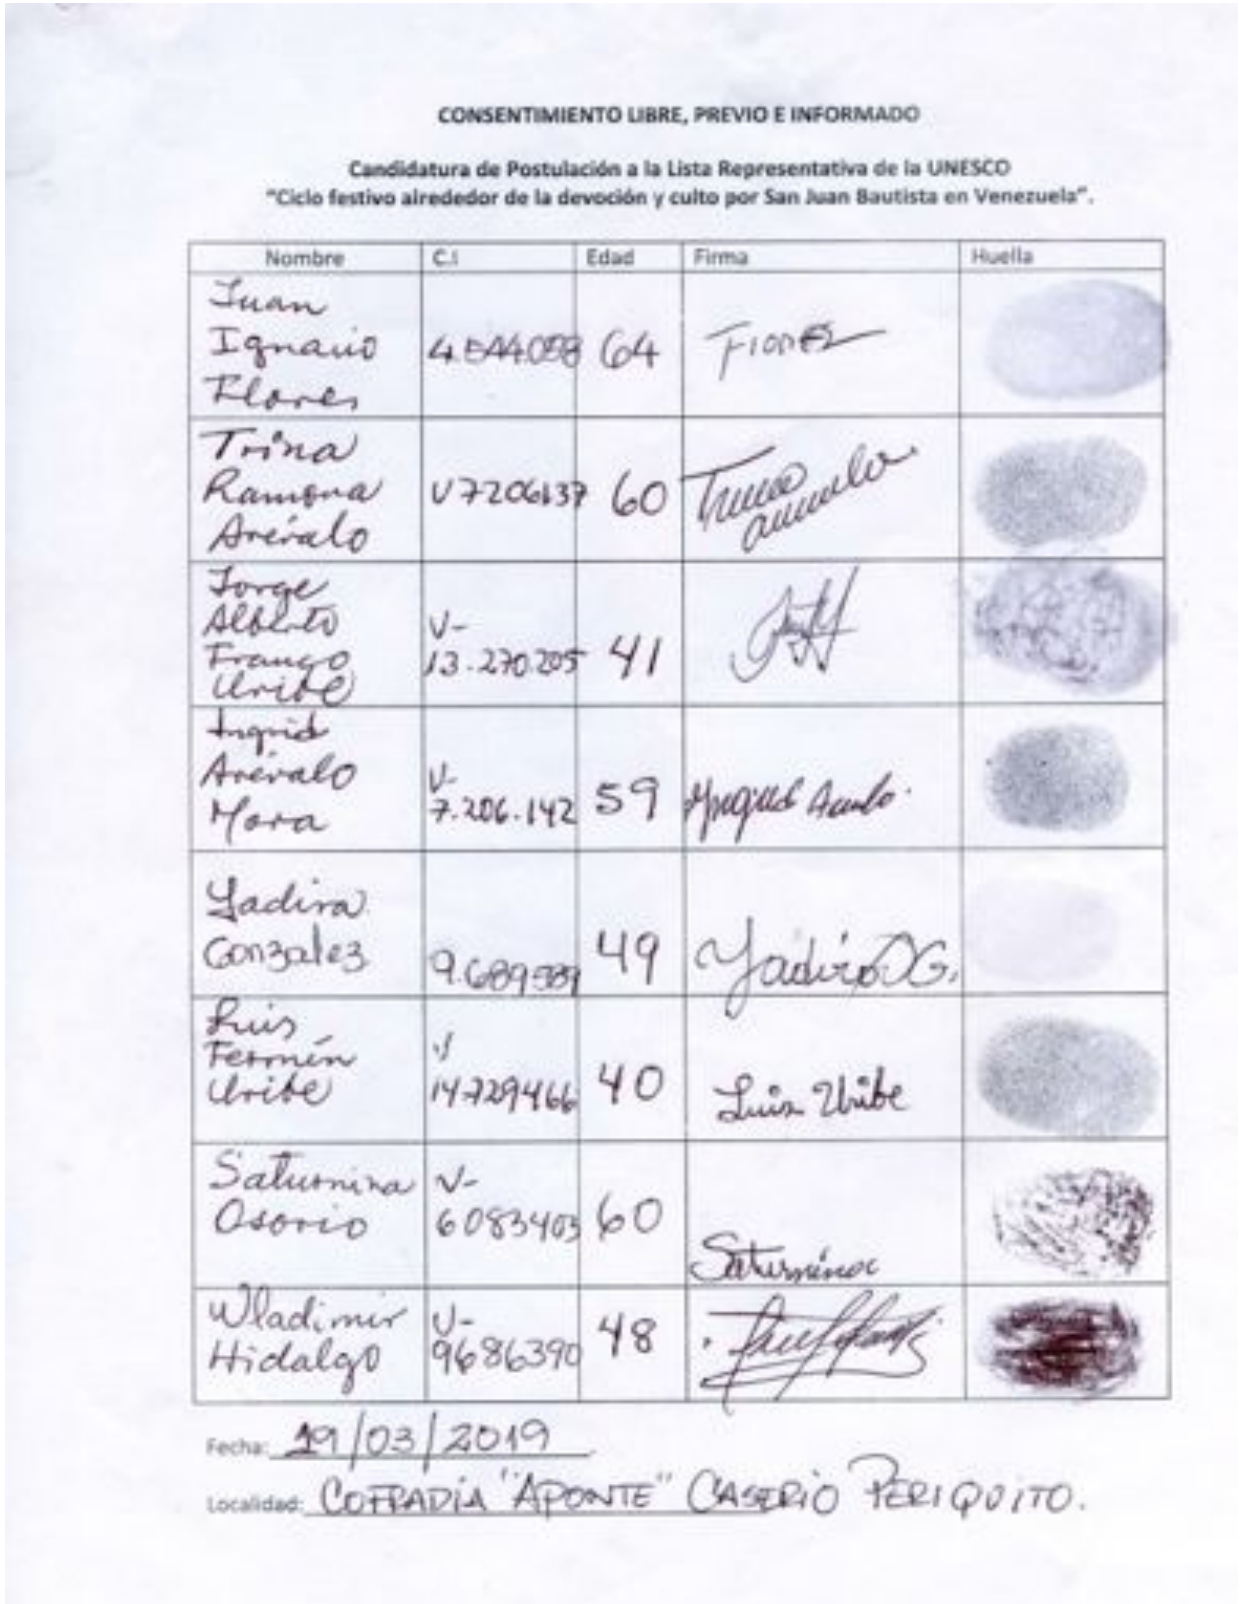 CONSENTIMIENTO LIBRE, PREVIO E INFORMADO
Candidatura de Postulación a la Lista Representativa de la UNESCO
"Ciclo festivo alrededor de la devoción y culto por San Juan Bautista en Venezuela".
Nombre C.I Edad Firma Huella
Juan
Ignacio 64 Flores
Flores
Trina
Ramona V7206137 60 Trina
Arévalo Arevalo
Jorge
Alberto V-
Franco 13.270.205 41
Uribe
Ingrid
Arévalo V-
Mora 7.206.142 59 Ingrid Arevalo.
Yadira
Gonzalez 9.689589 49 Yadira G.
Luis
Fermín V
Uribe 14729466 40 Luis Uribe
Saturnina V-
Osorio 6083403 60 Saturnina
Wladimir V-
Hidalgo 9686390 48
Fecha: 19/03/2019
Localidad: COFRADÍA "APONTE" CASERIO PERIQUITO.